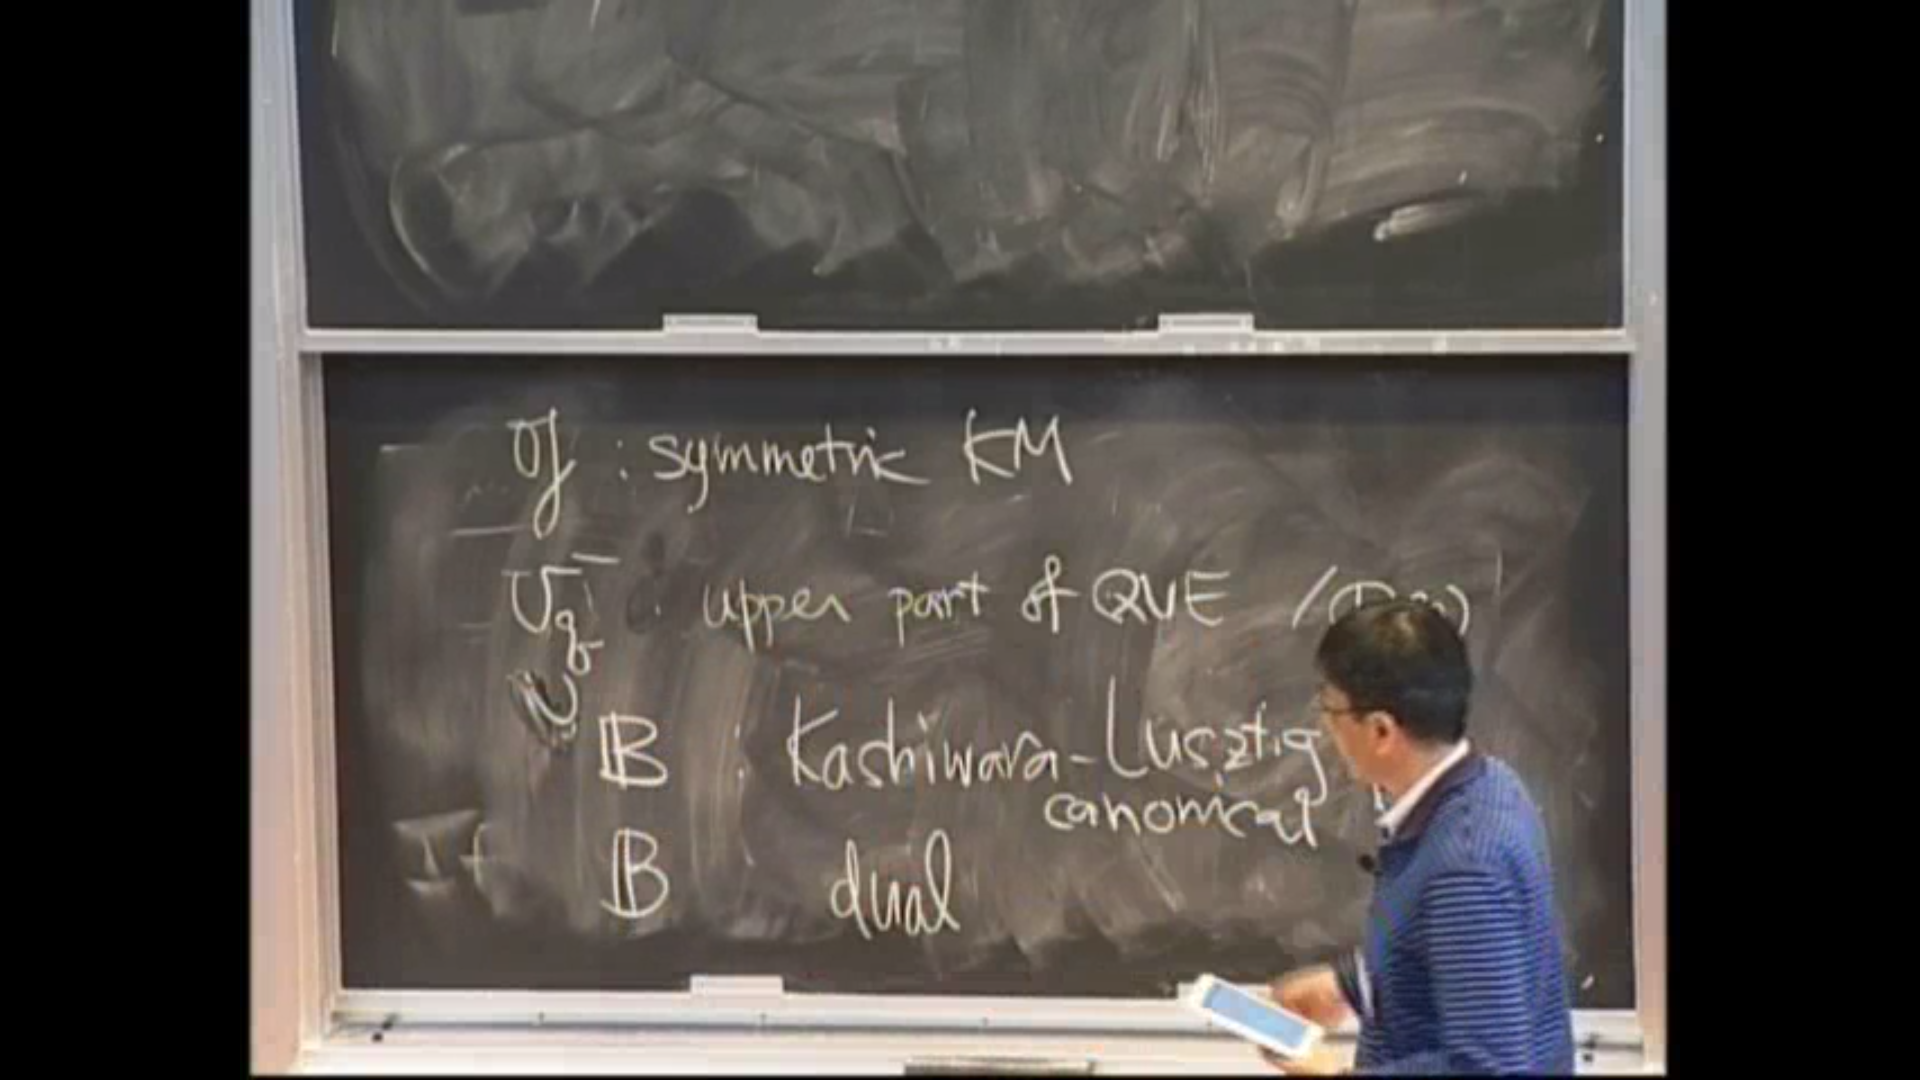 𝔤 : symmetric KM
U_q^- : upper part of QUE /
𝔹 : Kashiwara-Lusztig
canonical
𝔹 dual
If